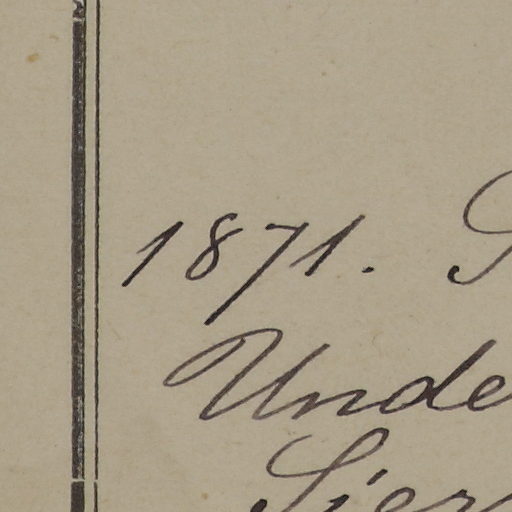 1871. S
Unde
Sier